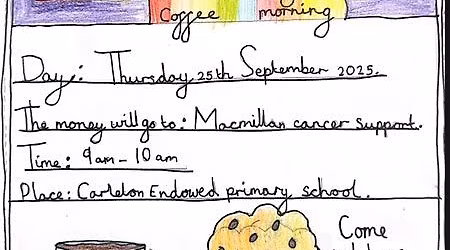 Coffee morning
Day: Thursday 25th September 2025.
The money will go to: Macmillan cancer support.
Time: 9am - 10am
Place: Carleton Endowed primary school.
Come